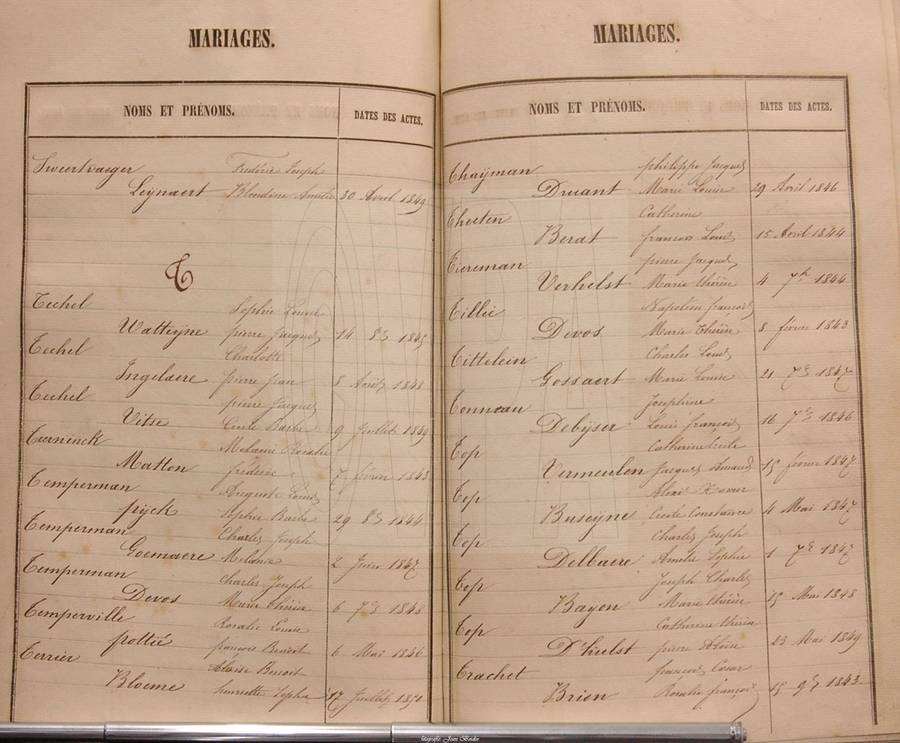 MARIAGES.
NOMS ET PRÉNOMS. DATES DES ACTES.
Sweertvaeger Frédéric Joseph
Leijnaert Blondine Amélie 30 Avril 1849
T
Techel Sophie Louise
Watteijne pierre Jacques 14 8bre 1845
Techel Charlotte
Ingelaere pierre Jean 8 Août 1848
Techel pierre Jacques
Vitse Cécile Barbe 9 Juillet 1849
Teerninck Mélanie Rosalie
Matton frédéric 7 février 1843
Temperman Auguste Louis
pijck Sophie Barbe 29 8bre 1844
Temperman Charles Joseph
Goemaere Mélanie 2 1847
Temperman Charles Joseph
Devos Marie thérèse 6 7bre 1848
Temperville Rosalie Louise
pottié françois Benoit 6 Mai 1846
Terrier Benoit
Bloeme henriette Sophie 17 Juillet
MARIAGES.
NOMS ET PRÉNOMS. DATES DES ACTES.
Thaÿman philippe Jacques
Druant Marie Louise 29 Avril 1846
Theeten Catherine
Berat françois Louis 15 Avril 1844
Tiereman pierre Jacques
Verhelst Marie thérèse 4 7bre 1844
Tillié Napoléon françois
Devos Marie Thérèse 8 février 1843
Tittelein Charles Louis
Gossaert Marie Louise 21 7bre 1847
Tonneau Joséphine
Debÿser Louis françois 16 7bre 1846
Top Catherine Cécile
Vermeulen Jacques Amand 15 février 1847
Top Xavier
Buseÿne Cécile Constance 4 Mai 1847
Top Charles Joseph
Delbaere Amélie Sophie 1 7bre 1847
Top Joseph Charles
Bayon Marie thérèse 15 Mai 1848
Top Catherine thérèse
D'hulst pierre 23 Mai 1849
Trachet françois César
Brien Rosalie françoise 15 9bre 1843